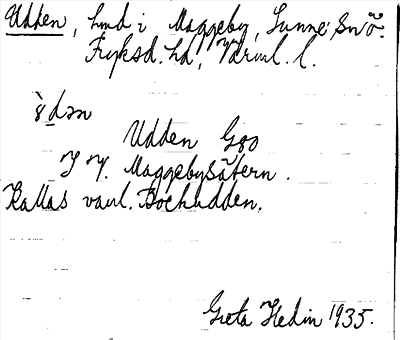 Udden, hmd i Maggeby, Sunne, Snö.
Fryksd. hd, Värml. l.
Udden G80
J Ny. Maggebysätern.
Kallas vanl. Bockudden.
Greta Hedin 1935.